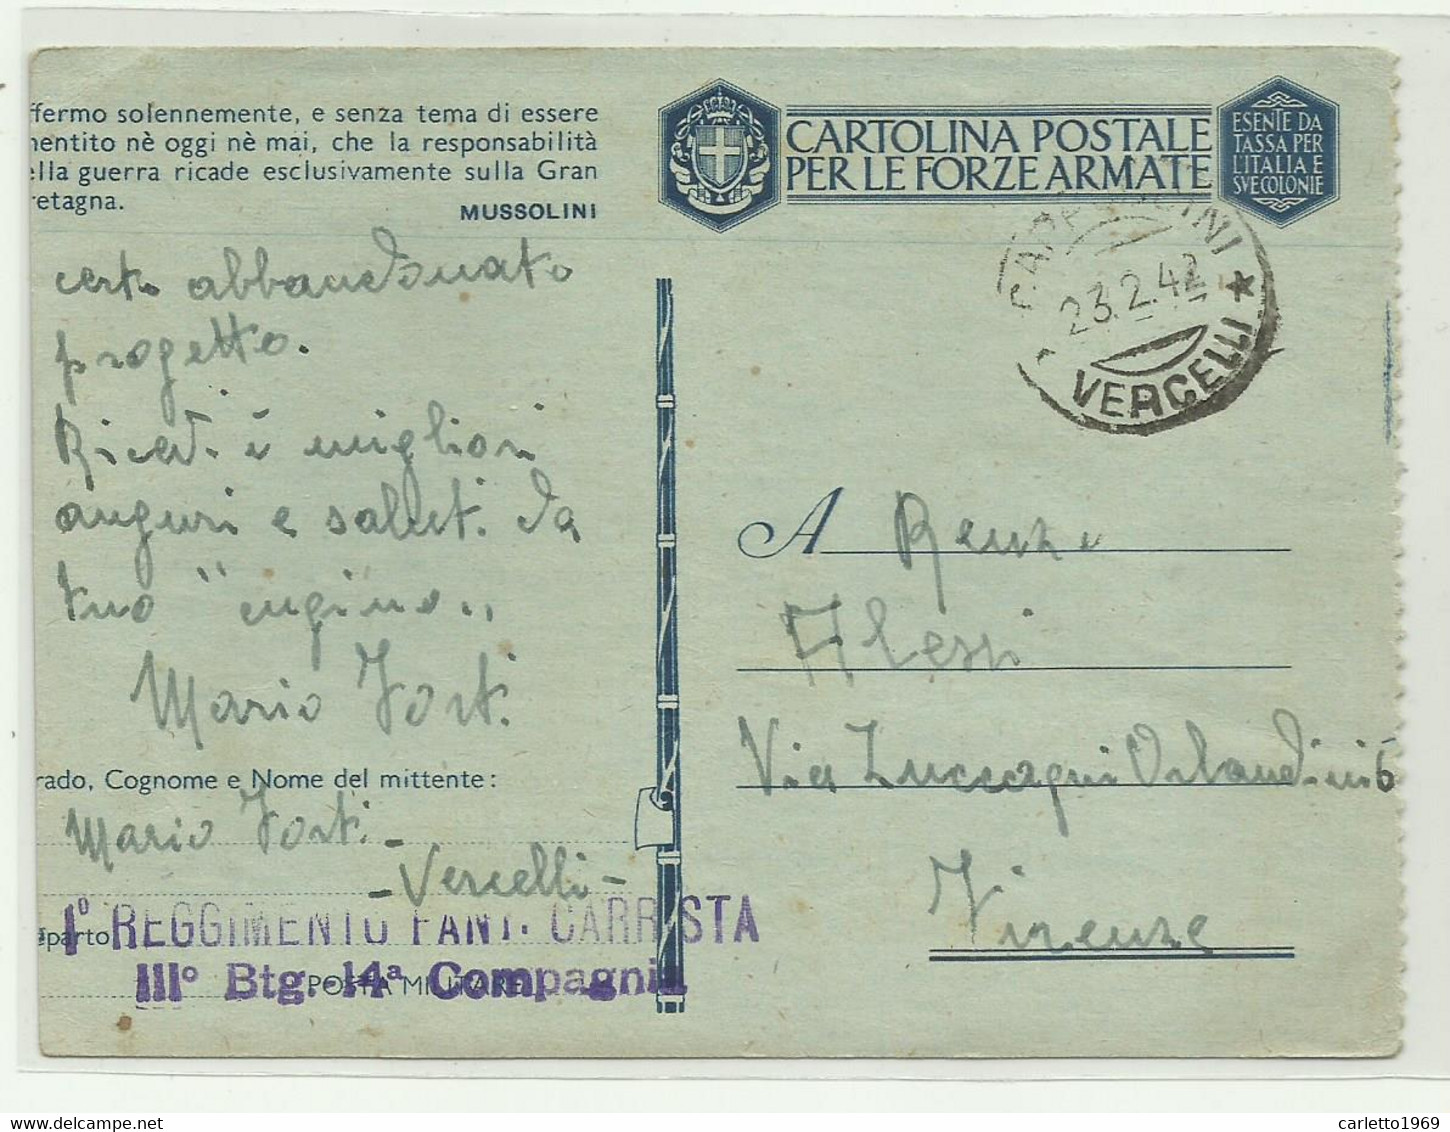 ffermo solennemente, e senza tema di essere
mentito nè oggi nè mai, che la responsabilità
ella guerra ricade esclusivamente sulla Gran
retagna.
MUSSOLINI
certo abbandonato
progetto.
Ricevi i migliori
auguri e saluti da
tuo "cugino"
Mario Forti
rado, Cognome e Nome del mittente:
Mario Forti
- Vercelli -
eparto
1° REGGIMENTO FANT. CARRISTA
III° Btg. 14ª Compagnia
POSTA MILITARE
CARTOLINA POSTALE
PER LE FORZE ARMATE
ESENTE DA
TASSA PER
L'ITALIA E
SVE COLONIE
23.2.42
VERCELLI
A Renzo
Alessi
Via Luccagni Orlandini 6
Firenze
carletto1969